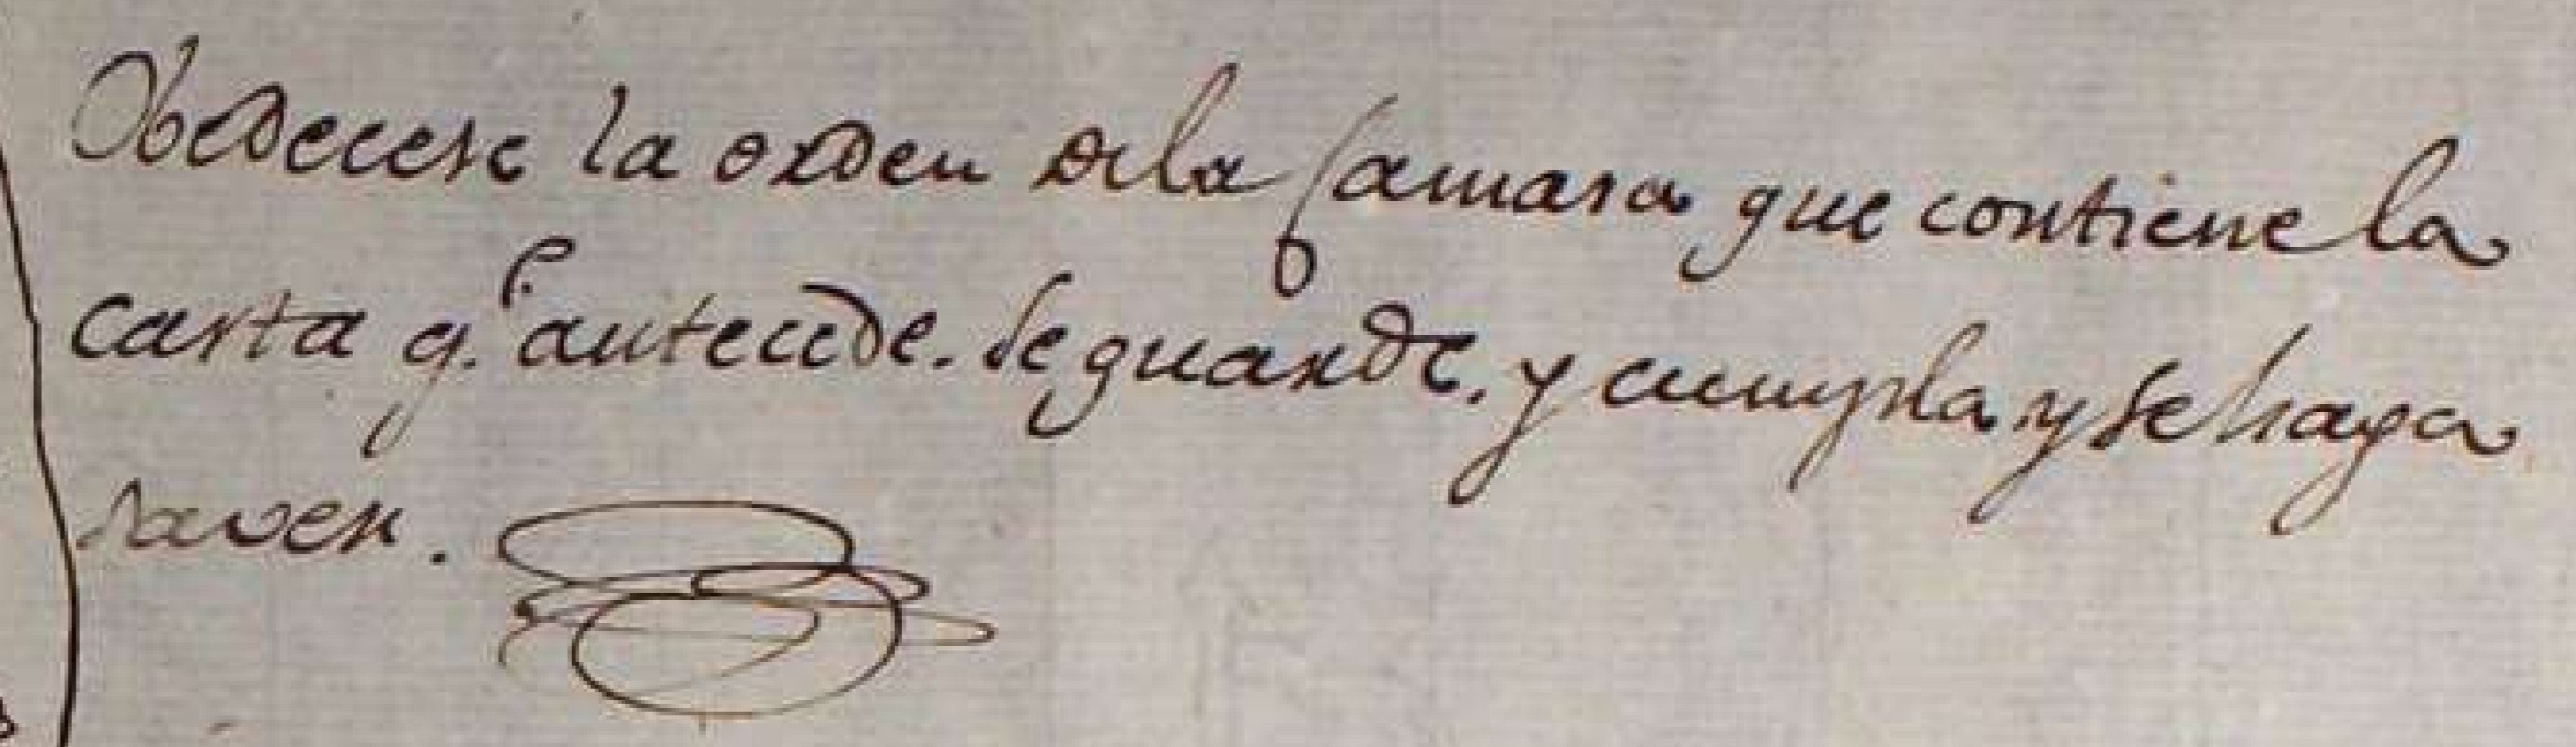 Obedecese la orden dela Camara que contiene la
carta q.e antecede. Se guarde, y cumpla y se haga
saver.